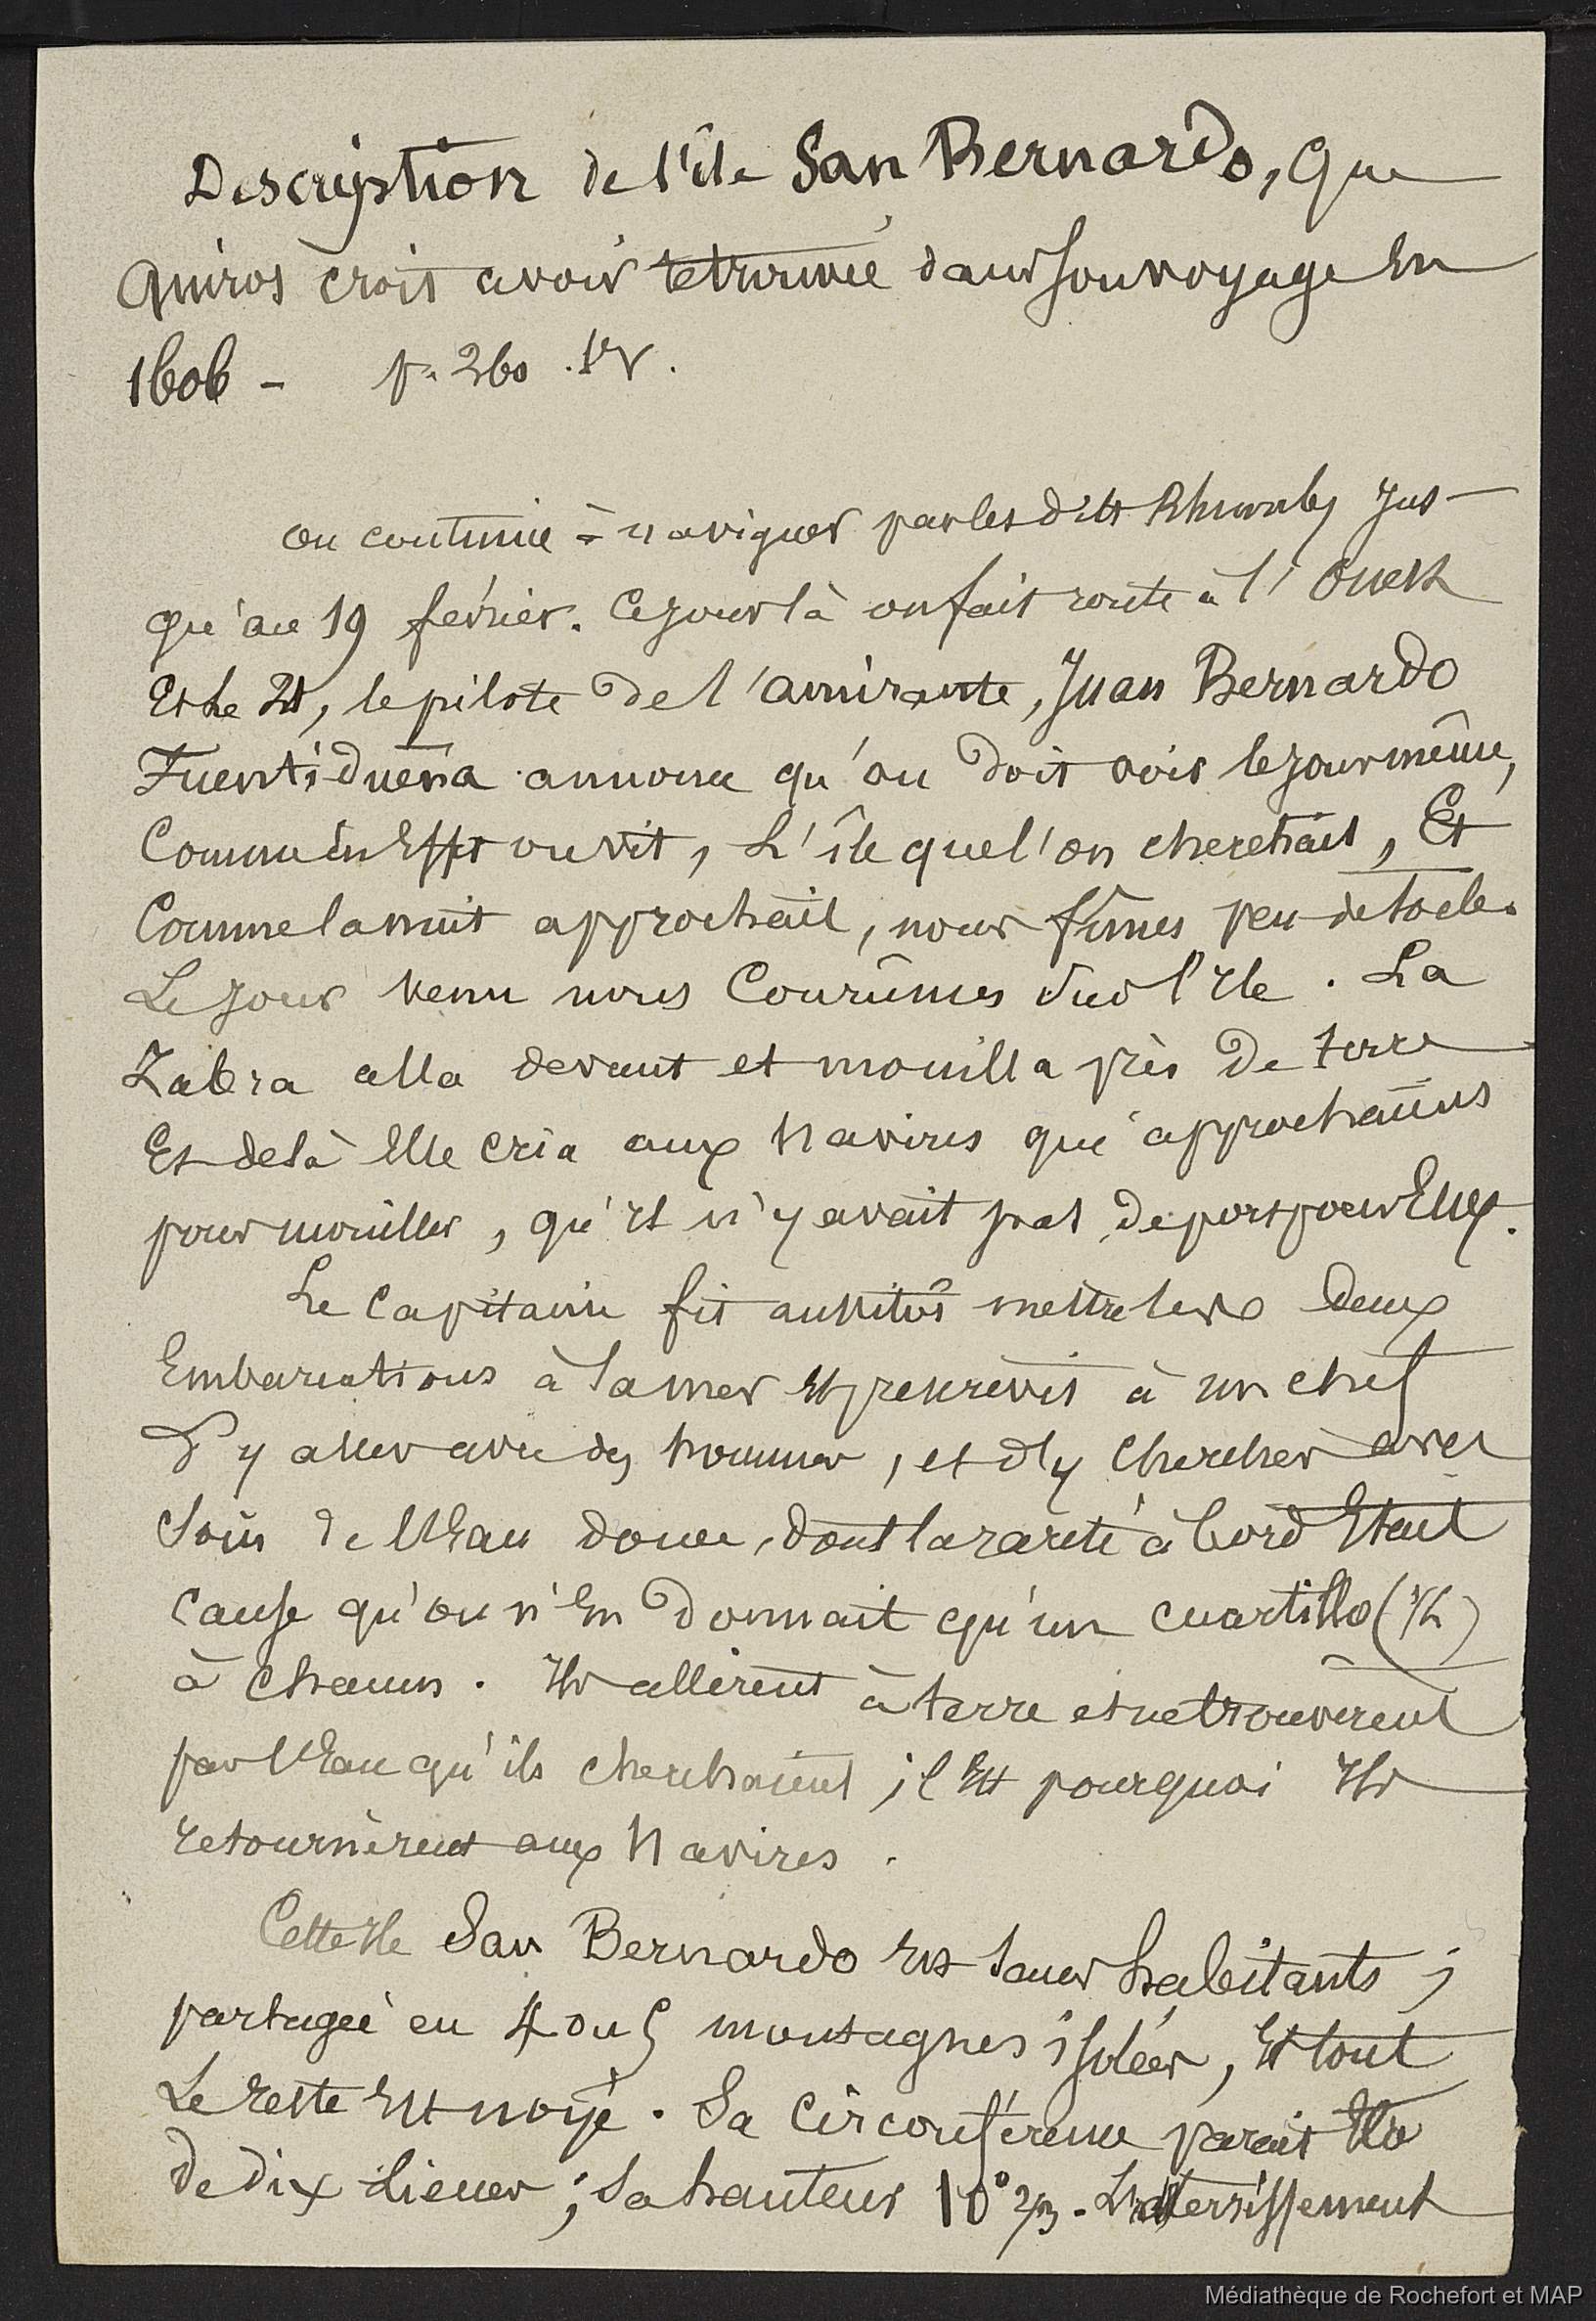 Description de l'île San Bernardo, que
Quiros croit avoir retrouvée dans son voyage en
1606 - p. 260 . 1er.
on continue à naviguer par les dits Rhumbs jus-
qu'au 19 février. Ce jour là on fait route à l'Ouest
Et le 21, le pilote de l'amirante, Juan Bernardo
Fuentidueña annonce qu'on doit voir le jour même,
Comme en Effet on vit, L'île que l'on cherchait, Et
Comme la nuit approchait, nous fûmes peu de toile.
Le jour venu nous Courûmes sur l'Ile. La
Zabra alla devant et mouilla près de terre
Et de là Elle cria aux Navires qui approchaient
pour mouiller, qu'Il n'y avait pas de port pour Eux.
Le Capitaine fit aussitôt mettre les deux
Embarcations à la mer Et prescrivit à un chef
d'y aller avec des hommes, et d'y chercher avec
Soin de l'Eau douce, dont la rareté à bord Etait
Cause qu'on n'En donnait qu'un cuartillo (1/2)
à Chacun. Ils allèrent à terre et ne trouvèrent
pas l'Eau qu'ils cherchaient ; c'Est pourquoi Ils
retournèrent aux Navires.
Cette Ile San Bernardo Est sans habitants ;
partagée en 4 ou 5 montagnes isolées, Et tout
Le reste Est noyé. Sa Circonférence parait Etre
de dix Lieues ; Sa hauteur 10° 2/3. L'atterrissement
Médiathèque de Rochefort et MAP